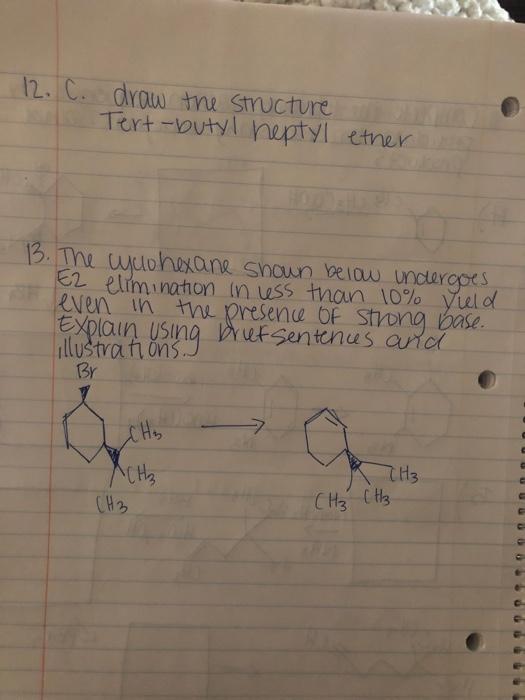 12. C. draw the structure
Tert-butyl heptyl ether
13. The cyclohexane shown below undergoes
E2 elimination in less than 10% yield
even in the presence of strong base.
Explain using brief sentences and
illustrations.
Br
CH3
CH3
CH3
CH3
CH3 CH3